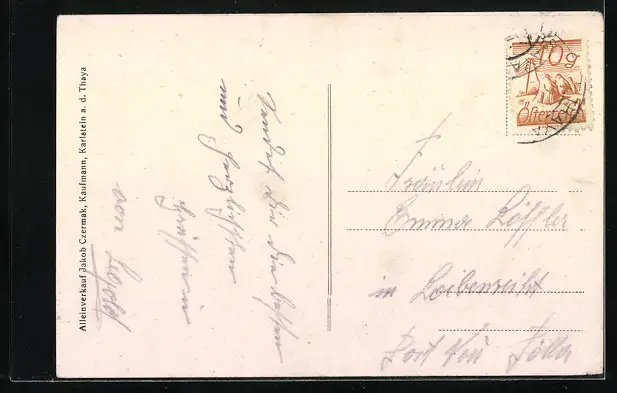 Alleinverkauf Jakob Czermak, Kaufmann, Karlstein a. d. Thaya
Sendet dir die besten
und herzlichsten
Grüße in
von Leopold
10g
Österreich
Fräulein
Emma Löffler
in Loibenreith
Post Neu Pölla